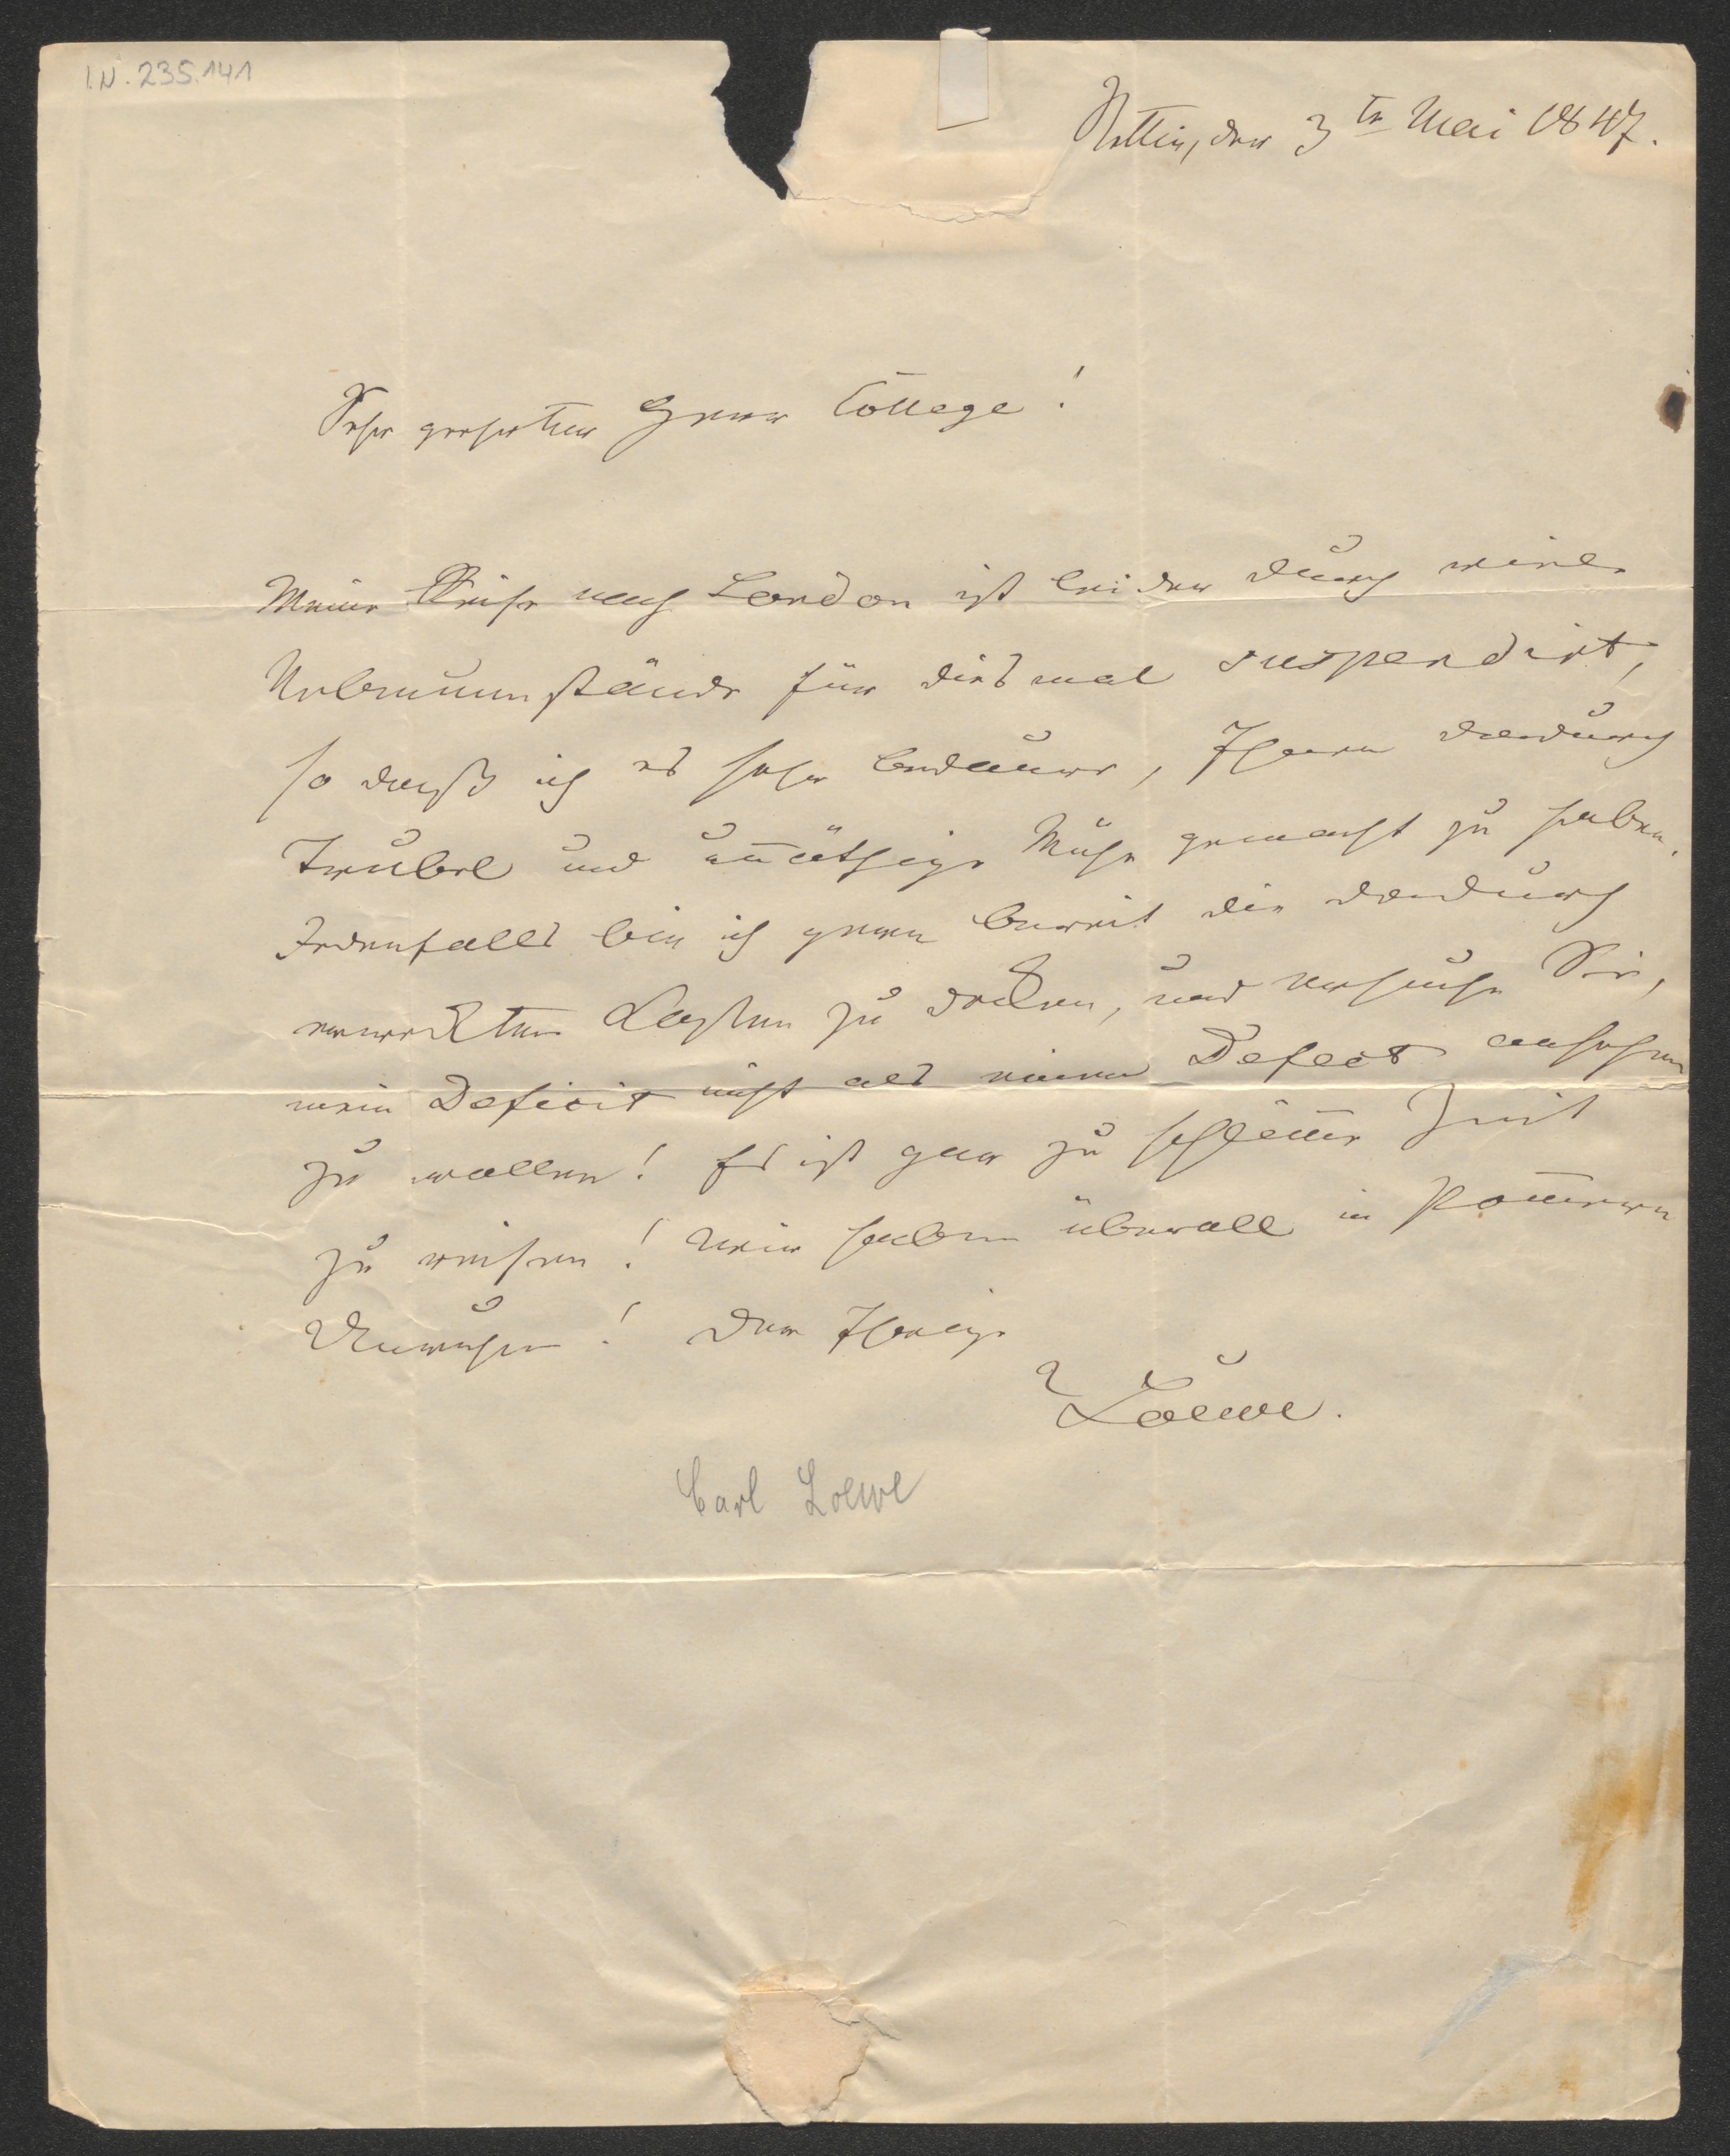 I.N. 235.141
Stettin, den 3 tn Mai 1847.
Sehr geehrter Herr College!
Meine Reise nach London ist leider durch viele
Nebenumstände für diesmal suspendirt,
so daß ich es sehr bedaure, Ihnen dadurch
Trubel und unnöthige Mühe gemacht zu haben.
Jedenfalls bin ich gern bereit die dadurch
erweckten Kosten zu decken, und ersuche Sie,
mein Deficit nicht als einen Defect ansehen
zu wollen! Es ist gar zu schlimme Zeit
zu reisen! Wir haben überall in Pommern
Unruhen! Der Ihrige
Loewe.
Carl Loewe